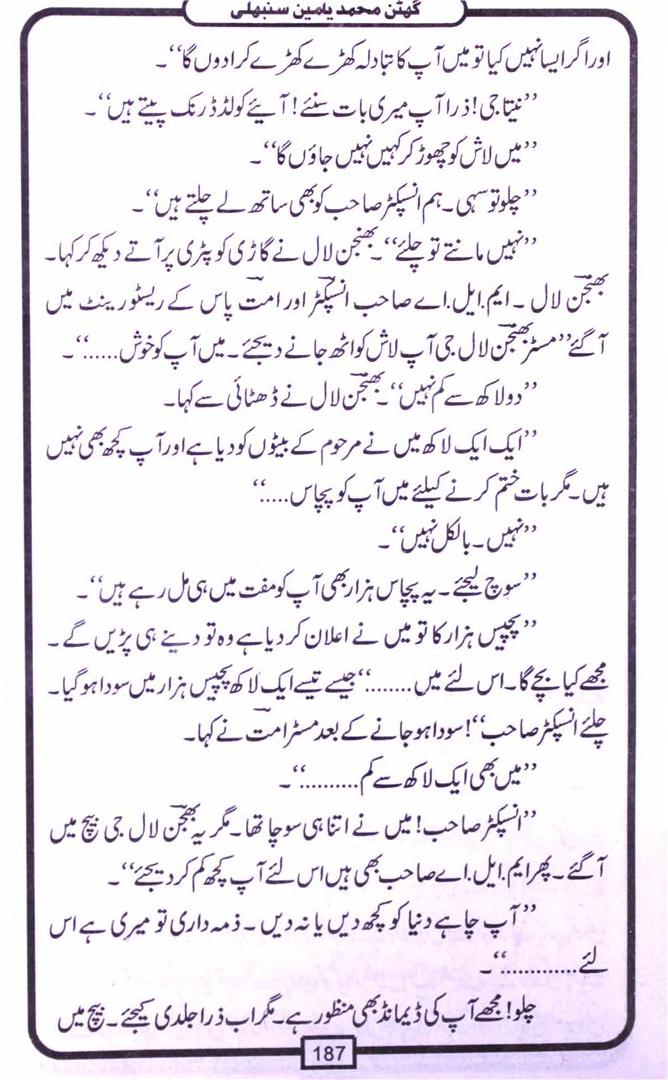 گھٹن محمد یامین سنبھلی
اور اگر ایسا نہیں کیا تو میں آپ کا تبادلہ کھڑے کھڑے کرا دوں گا‘‘۔
’’نیتا جی! ذرا آپ میری بات سنئے! آیئے کولڈ ڈرنک پیتے ہیں‘‘۔
’’میں لاش کو چھوڑ کر کہیں نہیں جاؤں گا‘‘۔
’’چلو تو سہی۔ ہم انسپکٹر صاحب کو بھی ساتھ لے چلتے ہیں‘‘۔
’’نہیں مانتے تو چلئے‘‘۔ بھنجن لال نے گاڑی کو پٹری پر آتے دیکھ کر کہا۔
بھنجن لال ۔ ایم.ایل.اے صاحب انسپکٹر اور امت پاس کے ریسٹورینٹ میں
آگئے ’’مسٹر بھنجن لال جی آپ لاش کو اٹھ جانے دیجئے۔ میں آپ کو خوش......‘‘۔
’’دو لاکھ سے کم نہیں‘‘۔ بھنجن لال نے ڈھٹائی سے کہا۔
’’ایک ایک لاکھ میں نے مرحوم کے بیٹوں کو دیا ہے اور آپ کچھ بھی نہیں
ہیں۔ مگر بات ختم کرنے کیلئے میں آپ کو پچاس.....‘‘
’’نہیں۔ بالکل نہیں‘‘۔
’’سوچ لیجئے۔ یہ پچاس ہزار بھی آپ کو مفت میں ہی مل رہے ہیں‘‘۔
’’پچیس ہزار کا تو میں نے اعلان کر دیا ہے وہ تو دینے ہی پڑیں گے۔
مجھے کیا بچے گا۔ اس لئے میں........‘‘ جیسے تیسے ایک لاکھ پچیس ہزار میں سودا ہو گیا۔
چلئے انسپکٹر صاحب‘‘! سودا ہو جانے کے بعد مسٹر امت نے کہا۔
’’میں بھی ایک لاکھ سے کم ..........‘‘۔
’’انسپکٹر صاحب! میں نے اتنا ہی سوچا تھا۔ مگر یہ بھنجن لال جی بیچ میں
آگئے۔ پھر ایم.ایل.اے صاحب بھی ہیں اس لئے آپ کچھ کم کر دیجئے‘‘۔
’’آپ چاہے دنیا کو کچھ دیں یا نہ دیں ۔ ذمہ داری تو میری ہے اس
لئے............‘‘۔
چلو! مجھے آپ کی ڈیمانڈ بھی منظور ہے۔ مگر اب ذرا جلدی کیجئے۔ بیچ میں
187